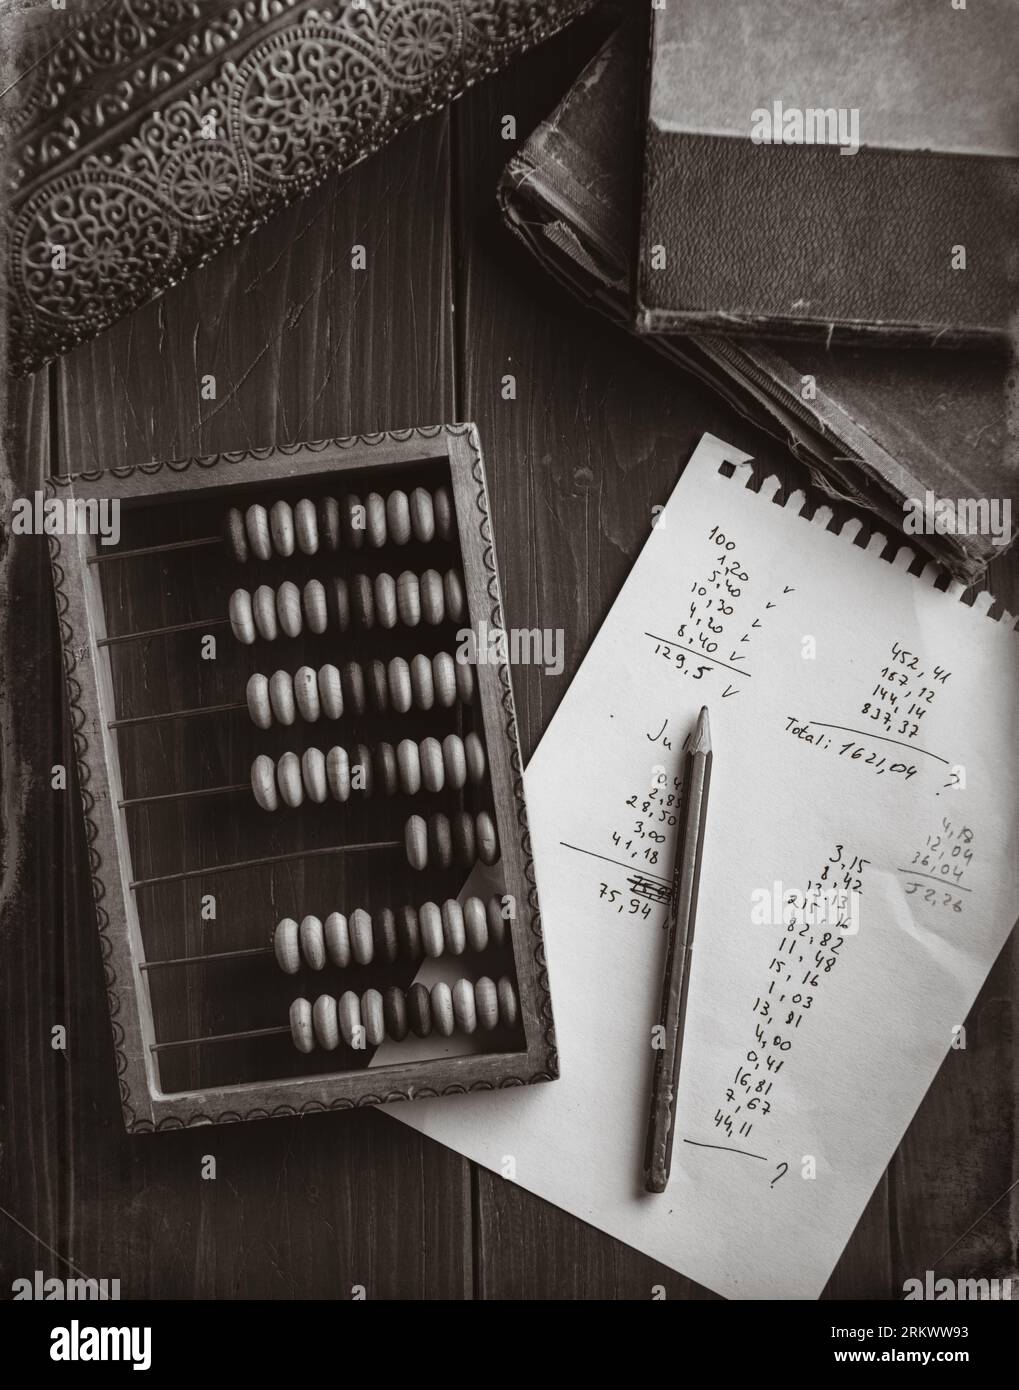 100
1,20
5,40
10,30
4,20
8,40
129,5
452,41
187,12
144,14
837,37
Total: 1621,04
?
Ju
2,85
28,50
3,00
41,18
75,94
4,18
12,04
36,04
52,26
3,15
8,42
13,13
215,16
82,82
11,48
15,16
1,03
13,81
4,00
0,41
16,81
7,67
44,11
?
alamy
alamy
Image ID: 2RKWW93
www.alamy.com